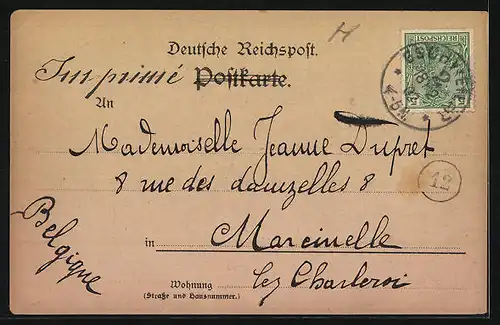 H
Deutsche Reichspost.
Imprimé Postkarte.
An
Mademoiselle Jeanne Dupret
8 rue des damzelles 8
12
Belgique
in Marcinelle
Wohnung lez Charleroi
(Straße und Hausnummer.)
REICHSPOST
ESCHWEILER